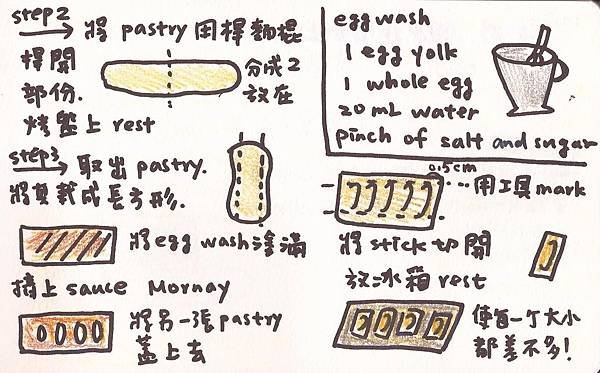 step2
→ 將 pastry 用桿麵棍
桿開
分成2
部份.
放在
烤墊上 rest
step3
→ 取出 pastry.
將其裁成長方形.
將 egg wash 塗滿
擠上 sauce Mornay
將另一張 pastry
蓋上去
egg wash
1 egg yolk
1 whole egg
20 mL water
pinch of salt and sugar
0.5cm
用工具 mark
將 stick 切開
放冰箱 rest
使每一个大小
都差不多!